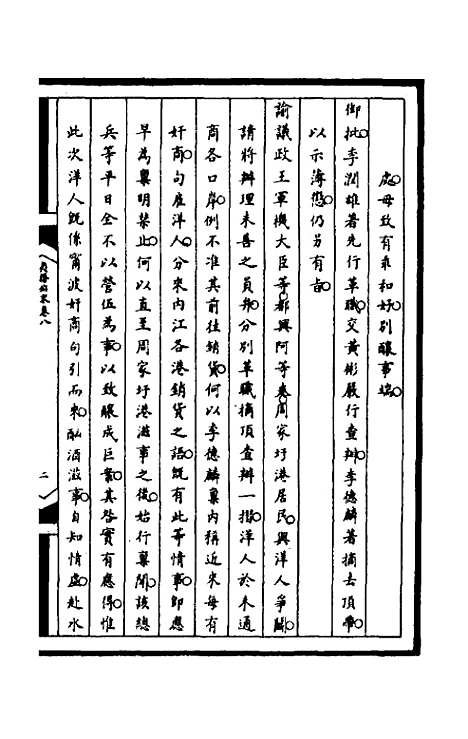 處毋致有乖和好別釀事端
御批李潤雄著先行革職交黃彬嚴行查辦李德麟著摘去頂帶
以示薄懲仍另有旨
諭議政王軍機大臣等都興阿等奏周家圩港居民與洋人爭鬬
請將辦理未善之員弁分別革職摘頂查辦一摺洋人於未通
商各口岸例不准其前往銷貨何以李德麟稟內稱近來每有
奸商句雇洋人分來內江各港銷貨之語旣有此等情事卽應
早為稟明禁止何以直至周家圩港滋事之後始行稟聞該總
兵等平日全不以營伍為事以致釀成巨案其咎實有應得惟
此次洋人旣係甯波奸商句引而來酗酒滋事自知情虛赴水
卷八
二